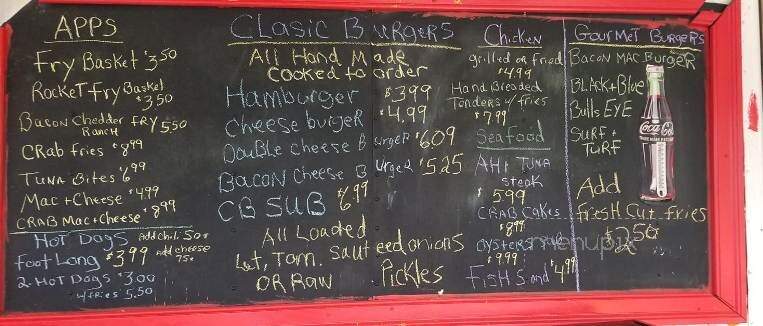 APPS
Fry Basket $3.50
Rocket Fry Basket
$3.50
Bacon Chedder FRY 5.50
Ranch
CRab fries $8.99
Tuna Bites 6.99
Mac + Cheese $4.99
CRAB Mac + Cheese $8.99
HoT Dogs Add chili 50¢
foot Long $3.99 Add cheese
75¢
2 HoT Dogs $3.00
w/fries 5.50
Clasic Burgers
All Hand Made
Cooked to order
Hamburger $3.99
Cheese burgeR $4.99
DouBLe Cheese Burger $6.09
Bacon Cheese Burger $5.25
CB SUB $6.99
All Loaded
Let, Tom. Sauteed onions
OR Raw Pickles
Chicken
grilled or fried
$4.99
Hand Breaded
Tenders w/ fries
$7.99
Seafood
AHI Tuna
steak
$5.99
CRAB Cakes
$8.99
oysters
$9.99
FisH Sand $4.99
GourMeT BurgeRs
Bacon MAC BurgeR
BLAck + Blue
Bulls EYE
SURF +
TuRF
Coca-Cola
Add
fresH Cut fries
$2.50
menupix